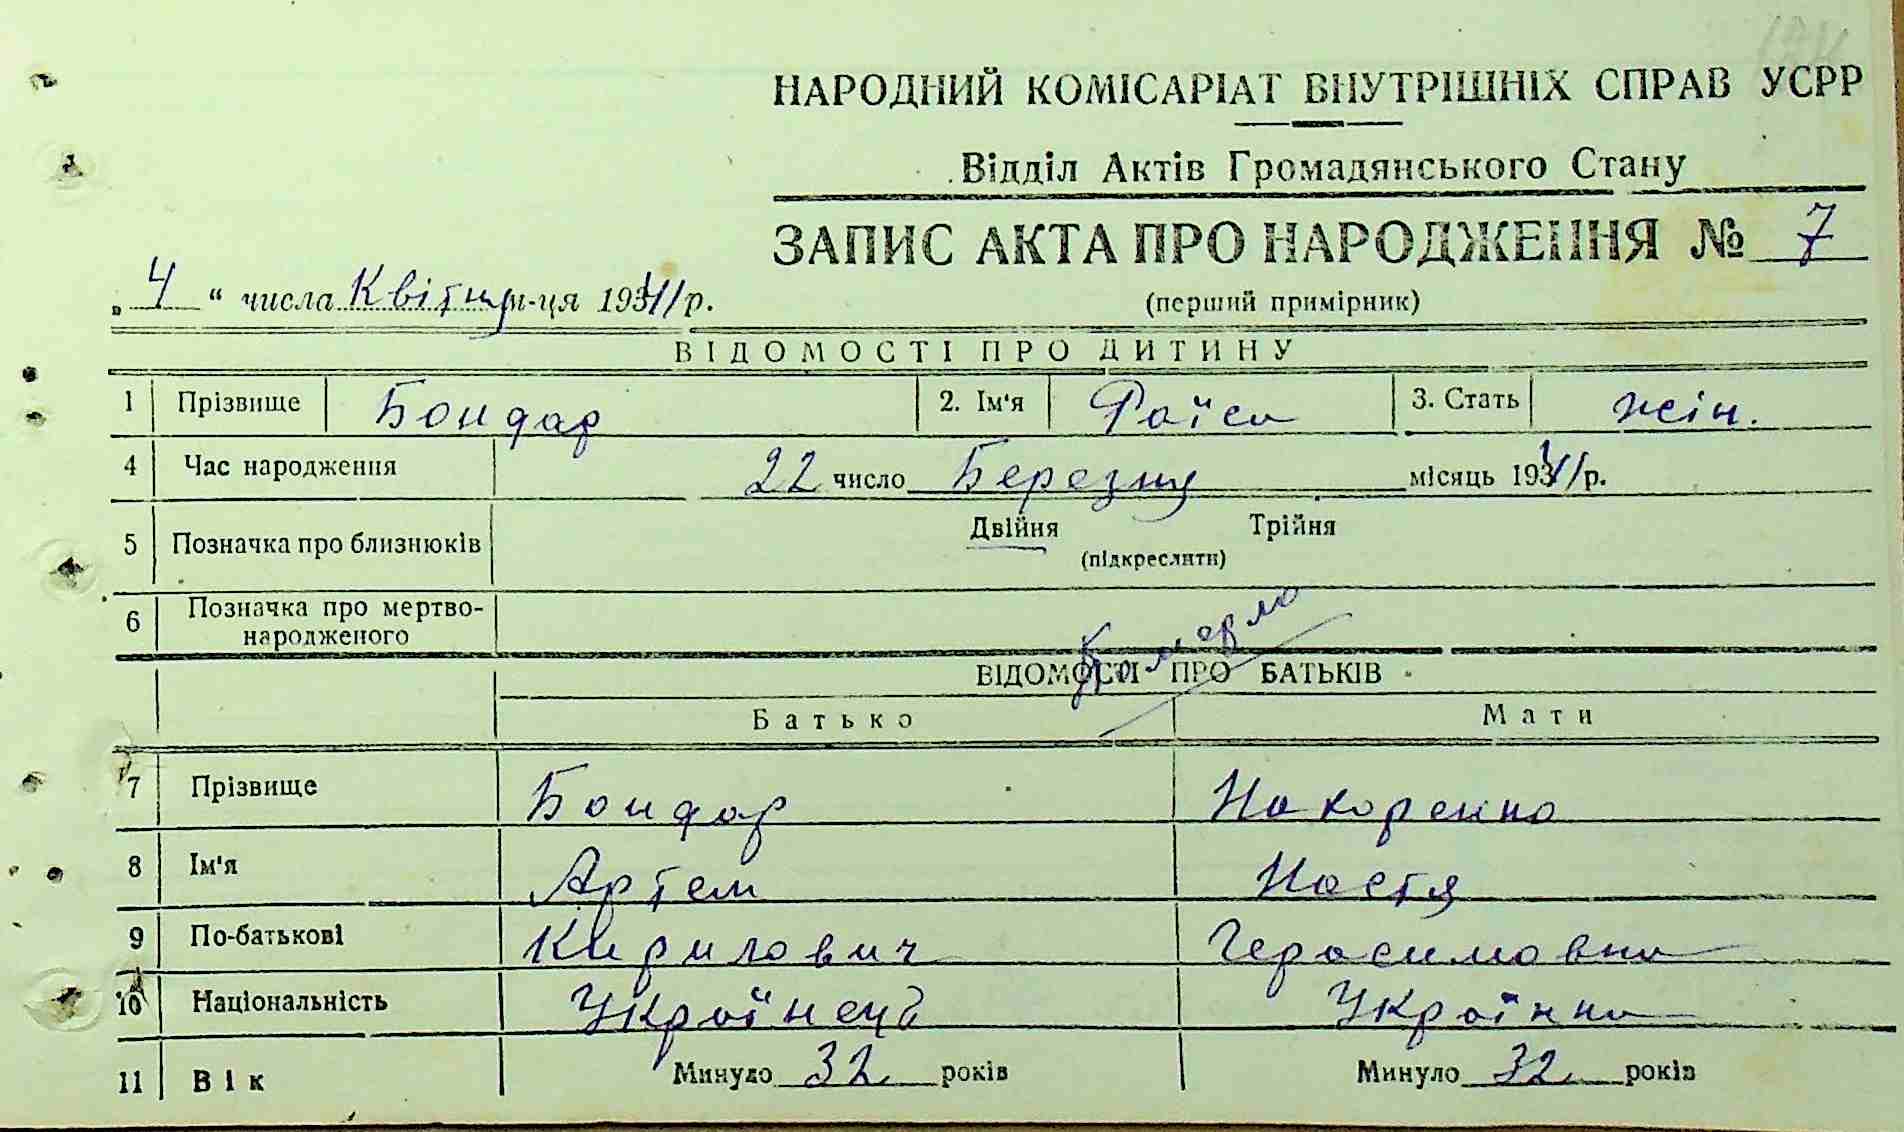 НАРОДНИЙ КОМІСАРІАТ ВНУТРІШНІХ СПРАВ УСРР
Відділ Актів Громадянського Стану
ЗАПИС АКТА ПРО НАРОДЖЕННЯ № 7
„ 4 “ числа Квітня м-ця 1941 р.
(перший примірник)
ВІДОМОСТІ ПРО ДИТИНУ
1 Прізвище Бондар 2. Ім'я Раїса 3. Стать жін.
4 Час народження 22 число Березня місяць 1941 р.
5 Позначка про близнюків Двійня Трійня
(підкреслити)
6 Позначка про мертво-
народженого
померла
ВІДОМОСТІ ПРО БАТЬКІВ
Батько Мати
7 Прізвище Бондар
8 Ім'я Артем Настя
9 По-батькові Кирилович Герасимовна
10 Національність Українець Українка
11 Вік Минуло 32 років Минуло 32 років